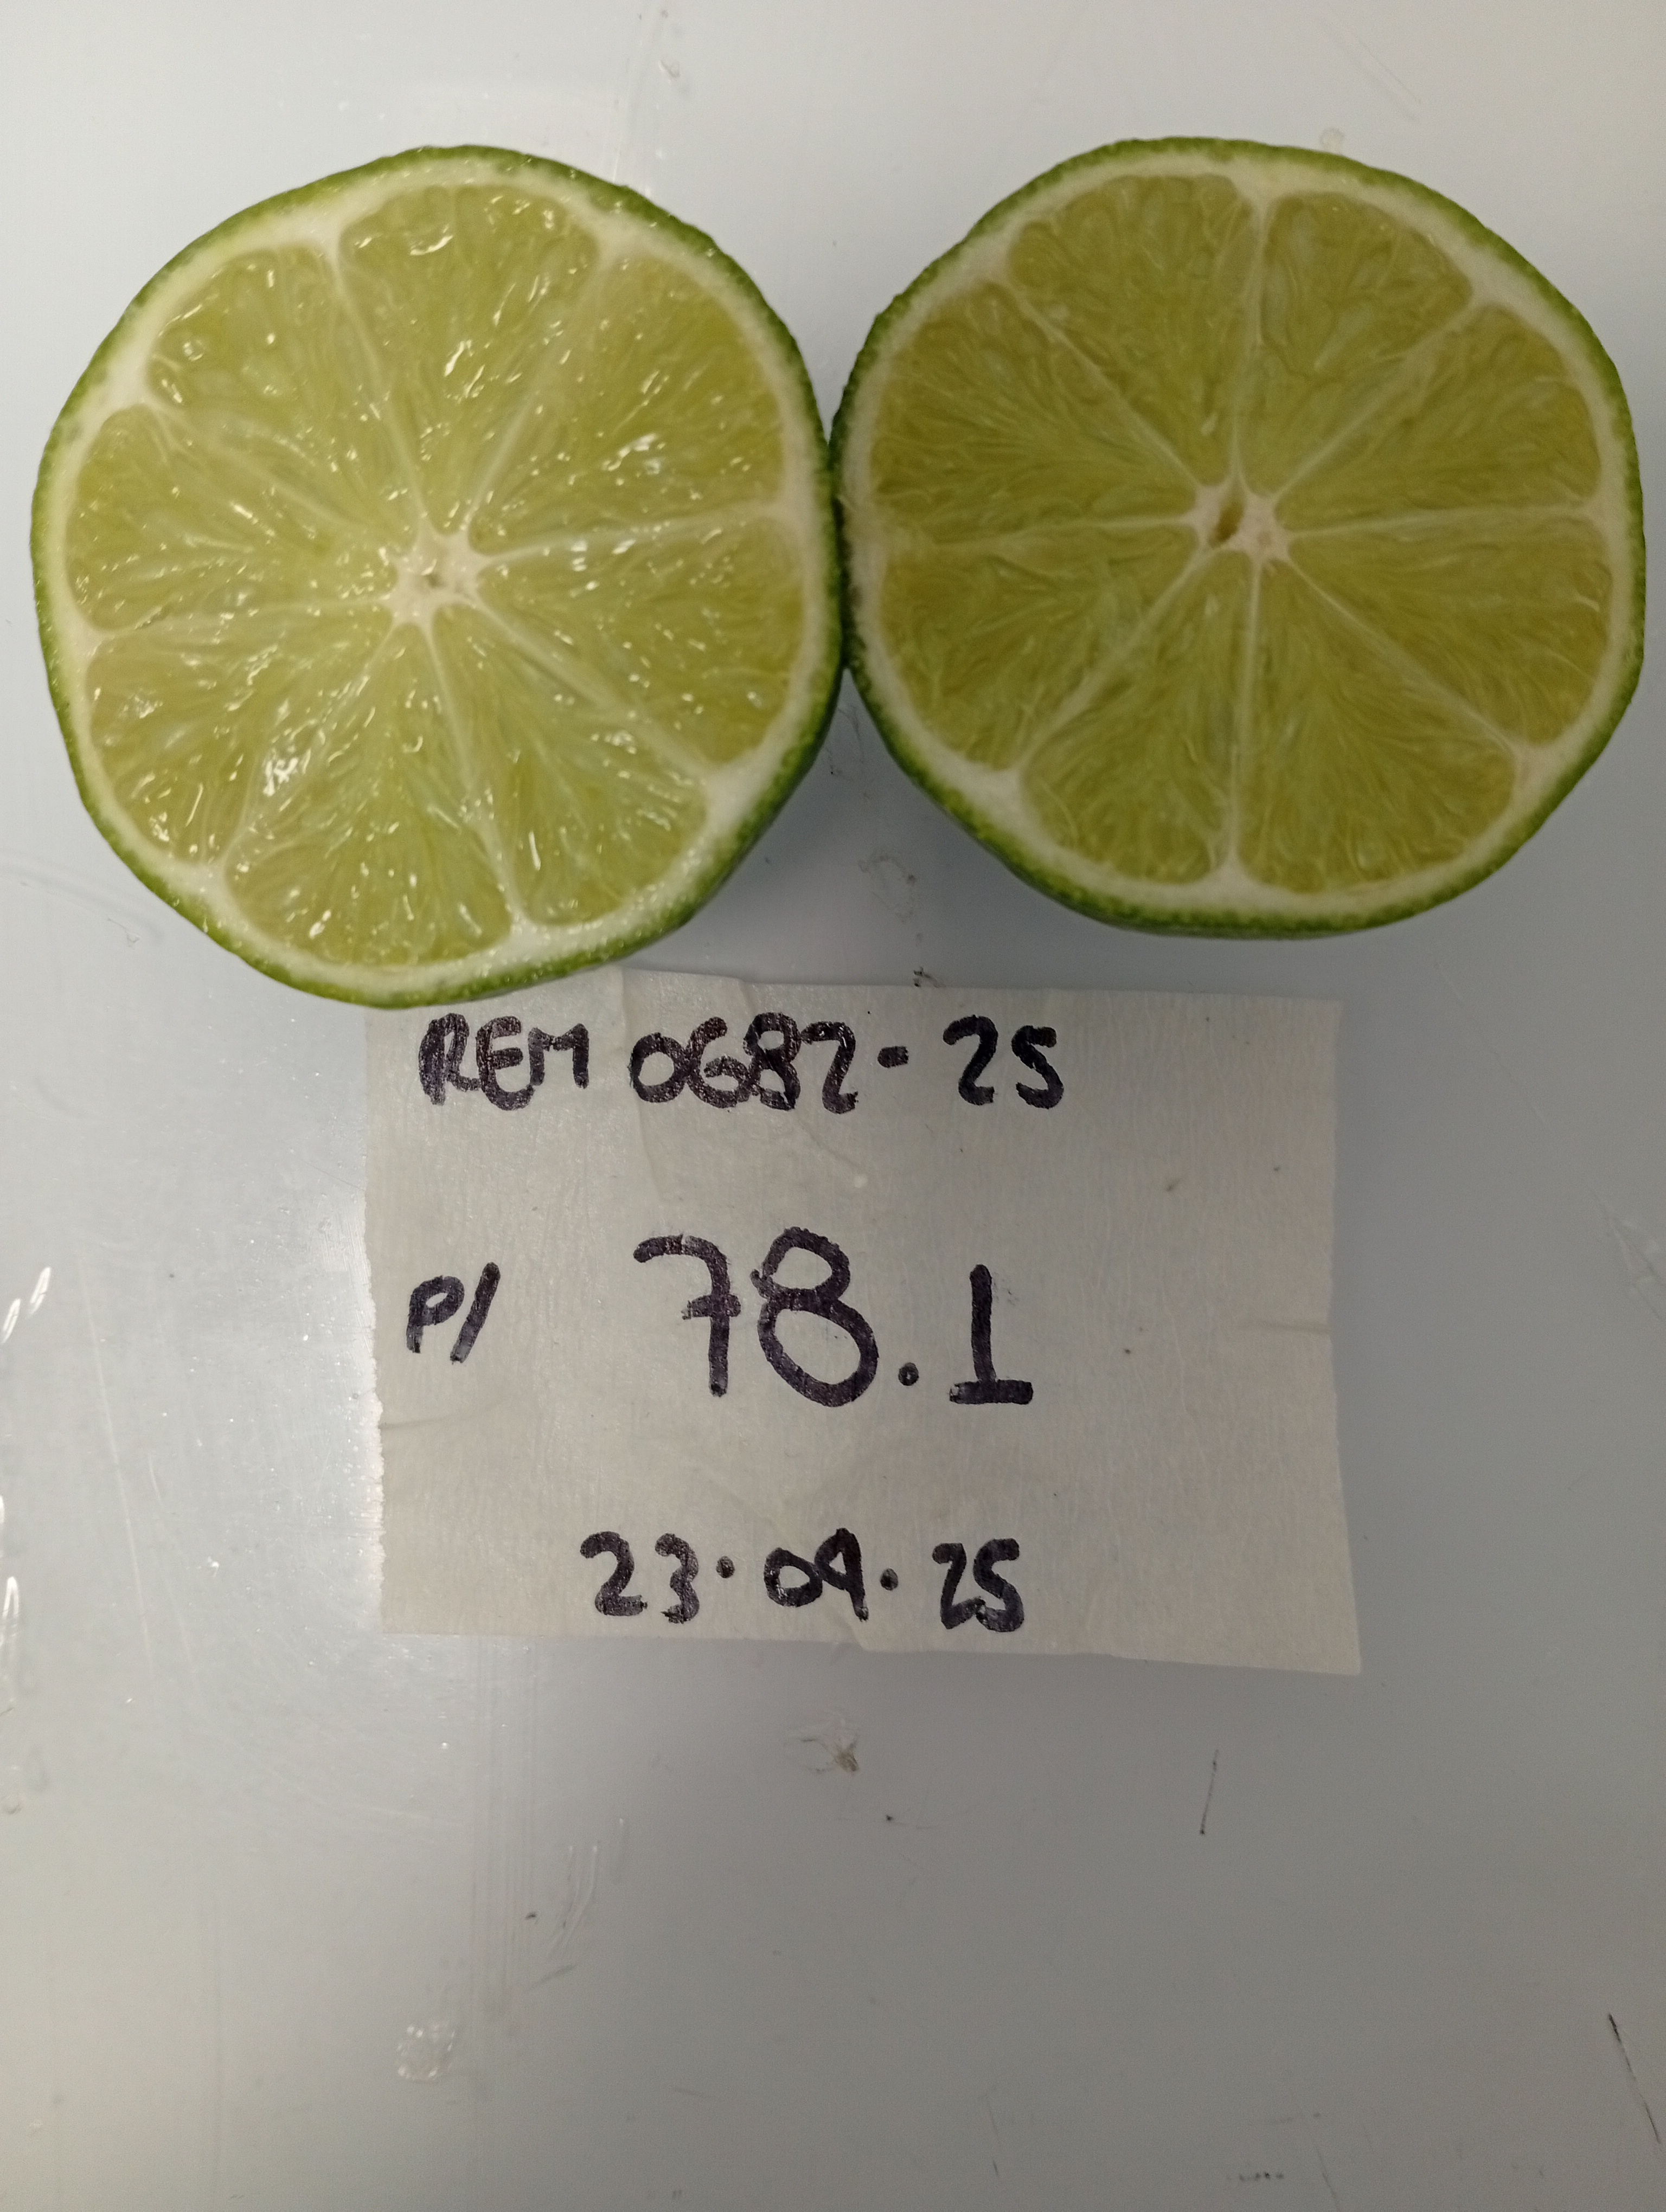 REM 0682-25
P/ 78.1
23.09.25